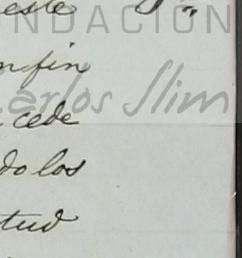 este
FUNDACIÓN
n fin
Carlos Slim
cede
do los
tud